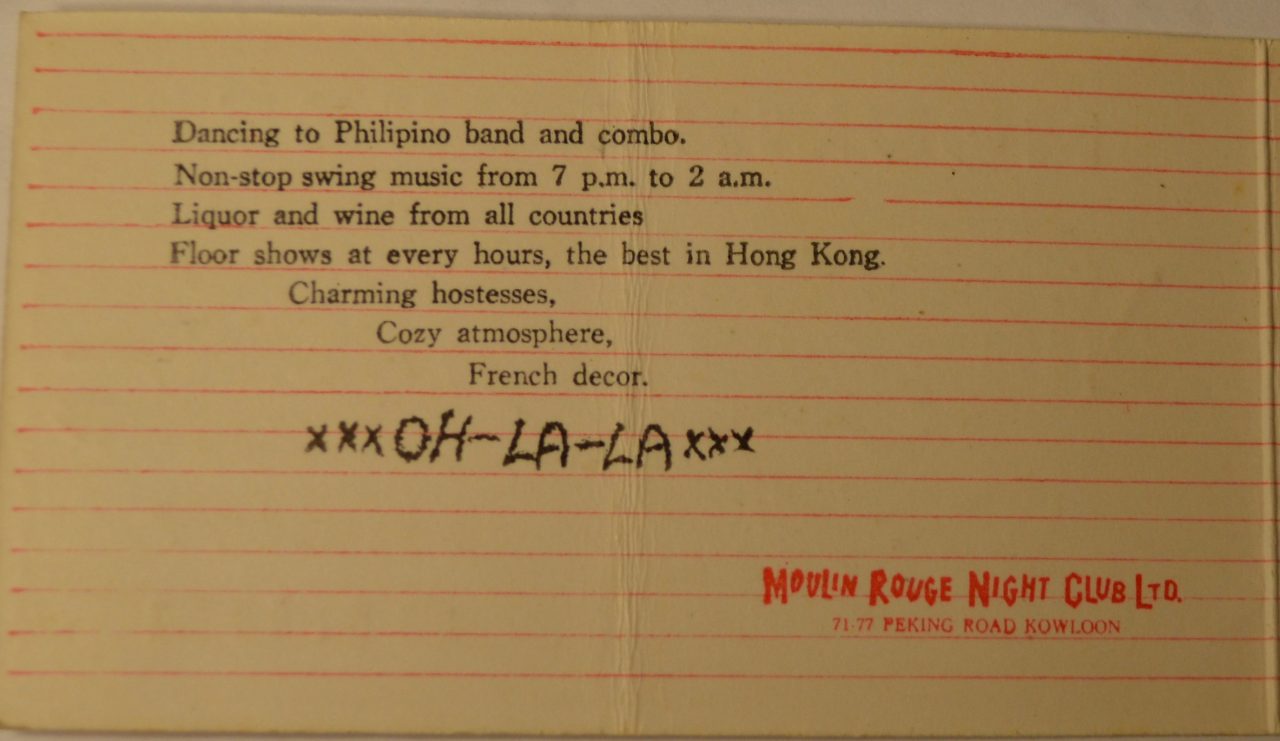 Dancing to Philipino band and combo.
Non-stop swing music from 7 p.m. to 2 a.m.
Liquor and wine from all countries
Floor shows at every hours, the best in Hong Kong.
Charming hostesses,
Cozy atmosphere,
French decor.
xxxOH-LA-LAxxx
MOULIN ROUGE NIGHT CLUB LTD.
71-77 PEKING ROAD KOWLOON